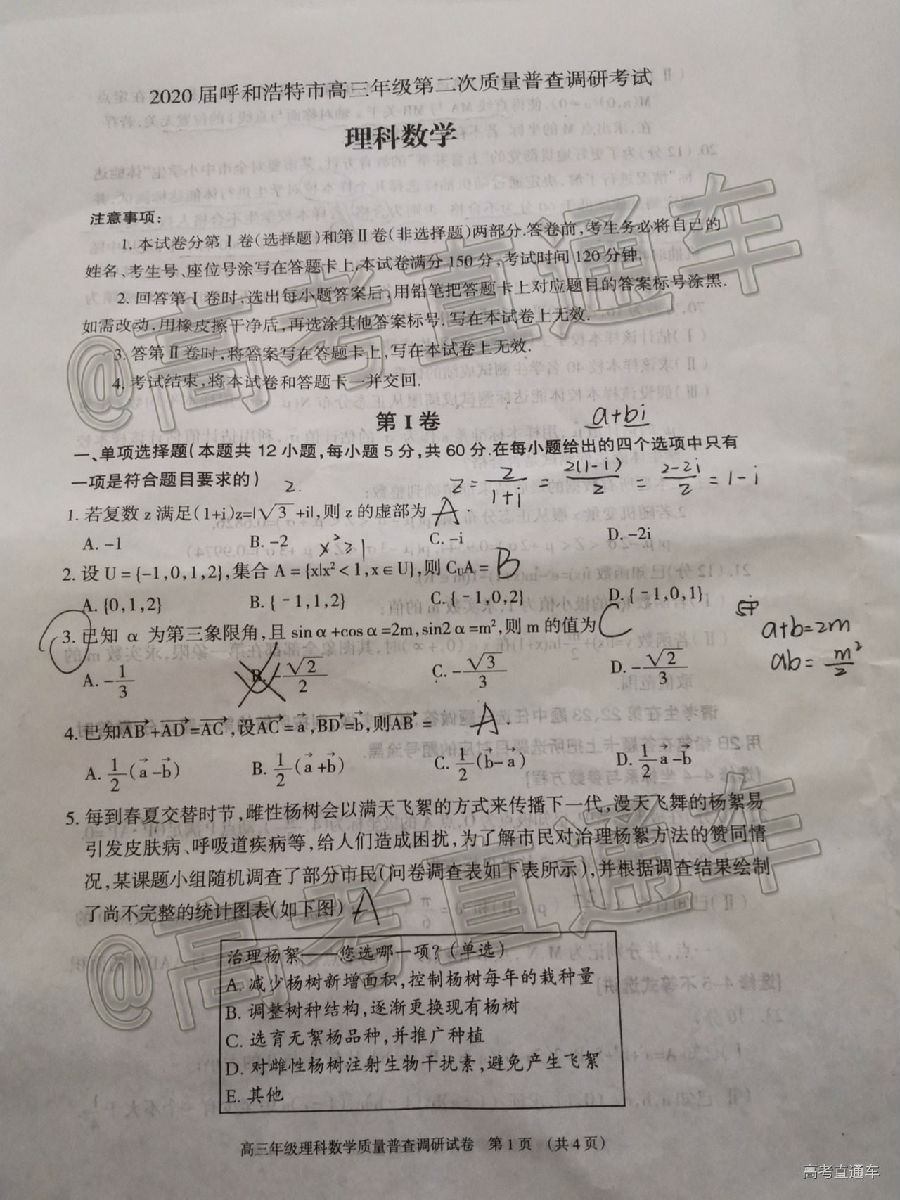 2020届呼和浩特市高三年级第二次质量普查调研考试
理科数学
注意事项:
1. 本试卷分第Ⅰ卷(选择题)和第Ⅱ卷(非选择题)两部分.答卷前,考生务必将自己的
姓名、考生号、座位号涂写在答题卡上,本试卷满分150分,考试时间120分钟,
2. 回答第Ⅰ卷时,选出每小题答案后,用铅笔把答题卡上对应题目的答案标号涂黑.
如需改动,用橡皮擦干净后,再选涂其他答案标号.写在本试卷上无效.
3. 答第Ⅱ卷时,将答案写在答题卡上,写在本试卷上无效.
4. 考试结束,将本试卷和答题卡一并交回.
第Ⅰ卷
a+bi
一、单项选择题(本题共12小题,每小题5分,共60分.在每小题给出的四个选项中只有
一项是符合题目要求的)
2
z=2/(1+i)=2(1-i)/2=(2-2i)/2=1-i
1. 若复数z满足(1+i)z=|√3+i|,则z的虚部为 A.
A. -1 B. -2 C. -i D. -2i
x²≥1
2. 设U={-1,0,1,2},集合A={x|x²<1,x∈U},则C_U A= B
A. {0,1,2} B. {-1,1,2} C. {-1,0,2} D. {-1,0,1}
3. 已知α为第三象限角,且sinα+cosα=2m,sin2α=m²,则m的值为 C
a+b=2m
ab=m²/2
A. -1/3 B. -√2/2 C. -√3/3 D. -√2/3
4. 已知AB+AD=AC,设AC=a,BD=b,则AB= A.
A. 1/2(a-b) B. 1/2(a+b) C. 1/2(b-a) D. 1/2a-b
5. 每到春夏交替时节,雌性杨树会以满天飞絮的方式来传播下一代,漫天飞舞的杨絮易
引发皮肤病、呼吸道疾病等,给人们造成困扰,为了解市民对治理杨絮方法的赞同情
况,某课题小组随机调查了部分市民(问卷调查表如下表所示),并根据调查结果绘制
了尚不完整的统计图表(如下图) A
治理杨絮——您选哪一项?(单选)
A. 减少杨树新增面积,控制杨树每年的栽种量
B. 调整树种结构,逐渐更换现有杨树
C. 选育无絮杨品种,并推广种植
D. 对雌性杨树注射生物干扰素,避免产生飞絮
E. 其他
高三年级理科数学质量普查调研试卷 第1页 (共4页)
@高考直通车
@高考直通车
高考直通车